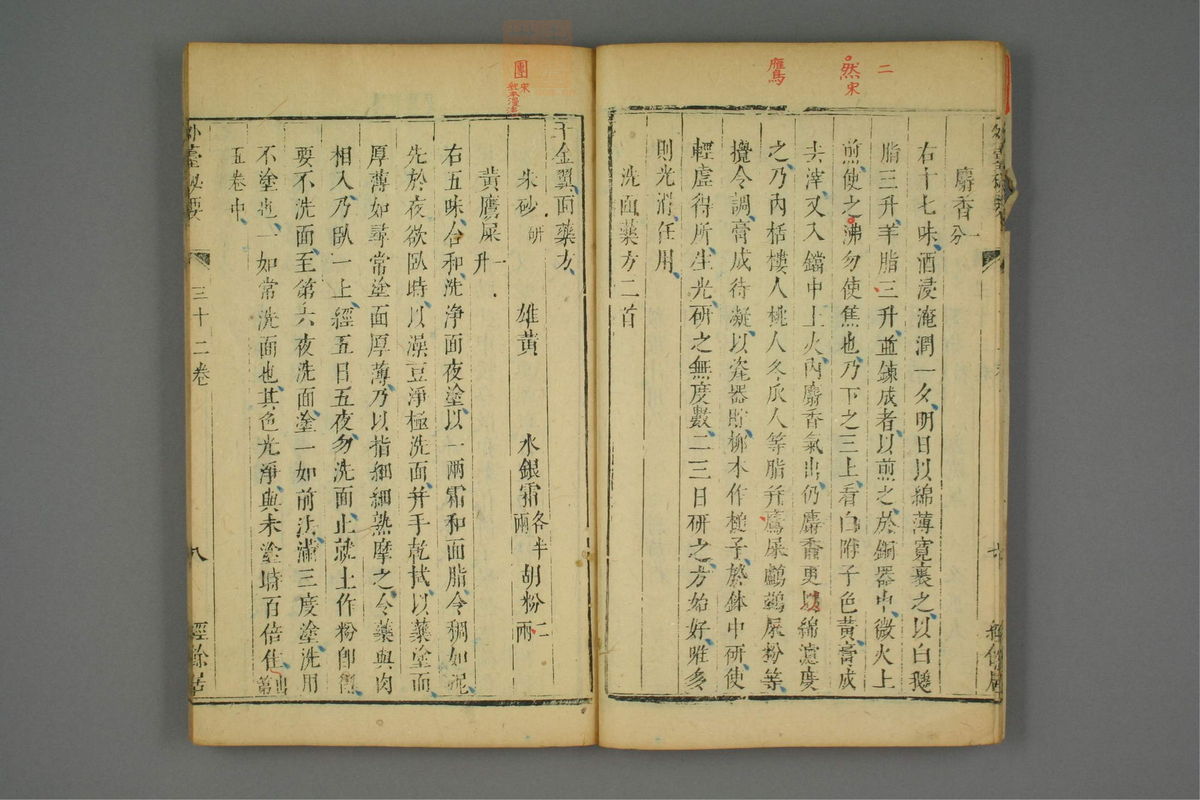 二
然宋
鴈
麝香一分
右十七味酒浸淹潤一夕明日以綿薄寛裹之以白鵞
脂三升羊脂三升並鍊成者以煎之於銅器中微火上
煎使之沸勿使焦也乃下之三上看白附子色黃膏成
去滓又入鐺中上火內麝香氣出仍麝香更以綿濾度
之乃內栝樓人桃人冬瓜人等脂并鷹屎鸕鷀屎粉等
攪令調膏成待凝以瓷器貯柳木作槌子於鉢中研使
輕虛得所生光研之無度數二三日研之方始好唯多
則光滑任用
洗面藥方二首
外臺秘要
團宋
千金翼面藥方
朱砂研
雄黃
水銀霜各半兩
胡粉二兩
黃鷹屎一升
右五味合和洗淨面夜塗以一兩霜和面脂令稠如泥
先於夜欲臥時以澡豆淨極洗面并手乾拭以藥塗面
厚薄如尋常塗面厚薄乃以指細細熟摩之令藥與肉
相入乃臥一上經五日五夜勿洗面止就上作粉卽得
要不洗面至第六夜洗面塗一如前法滿三度塗洗用
不塗也一如常洗面也其色光淨與未塗時百倍佳出第
五卷中
外臺秘要
三十二卷
八
經餘居